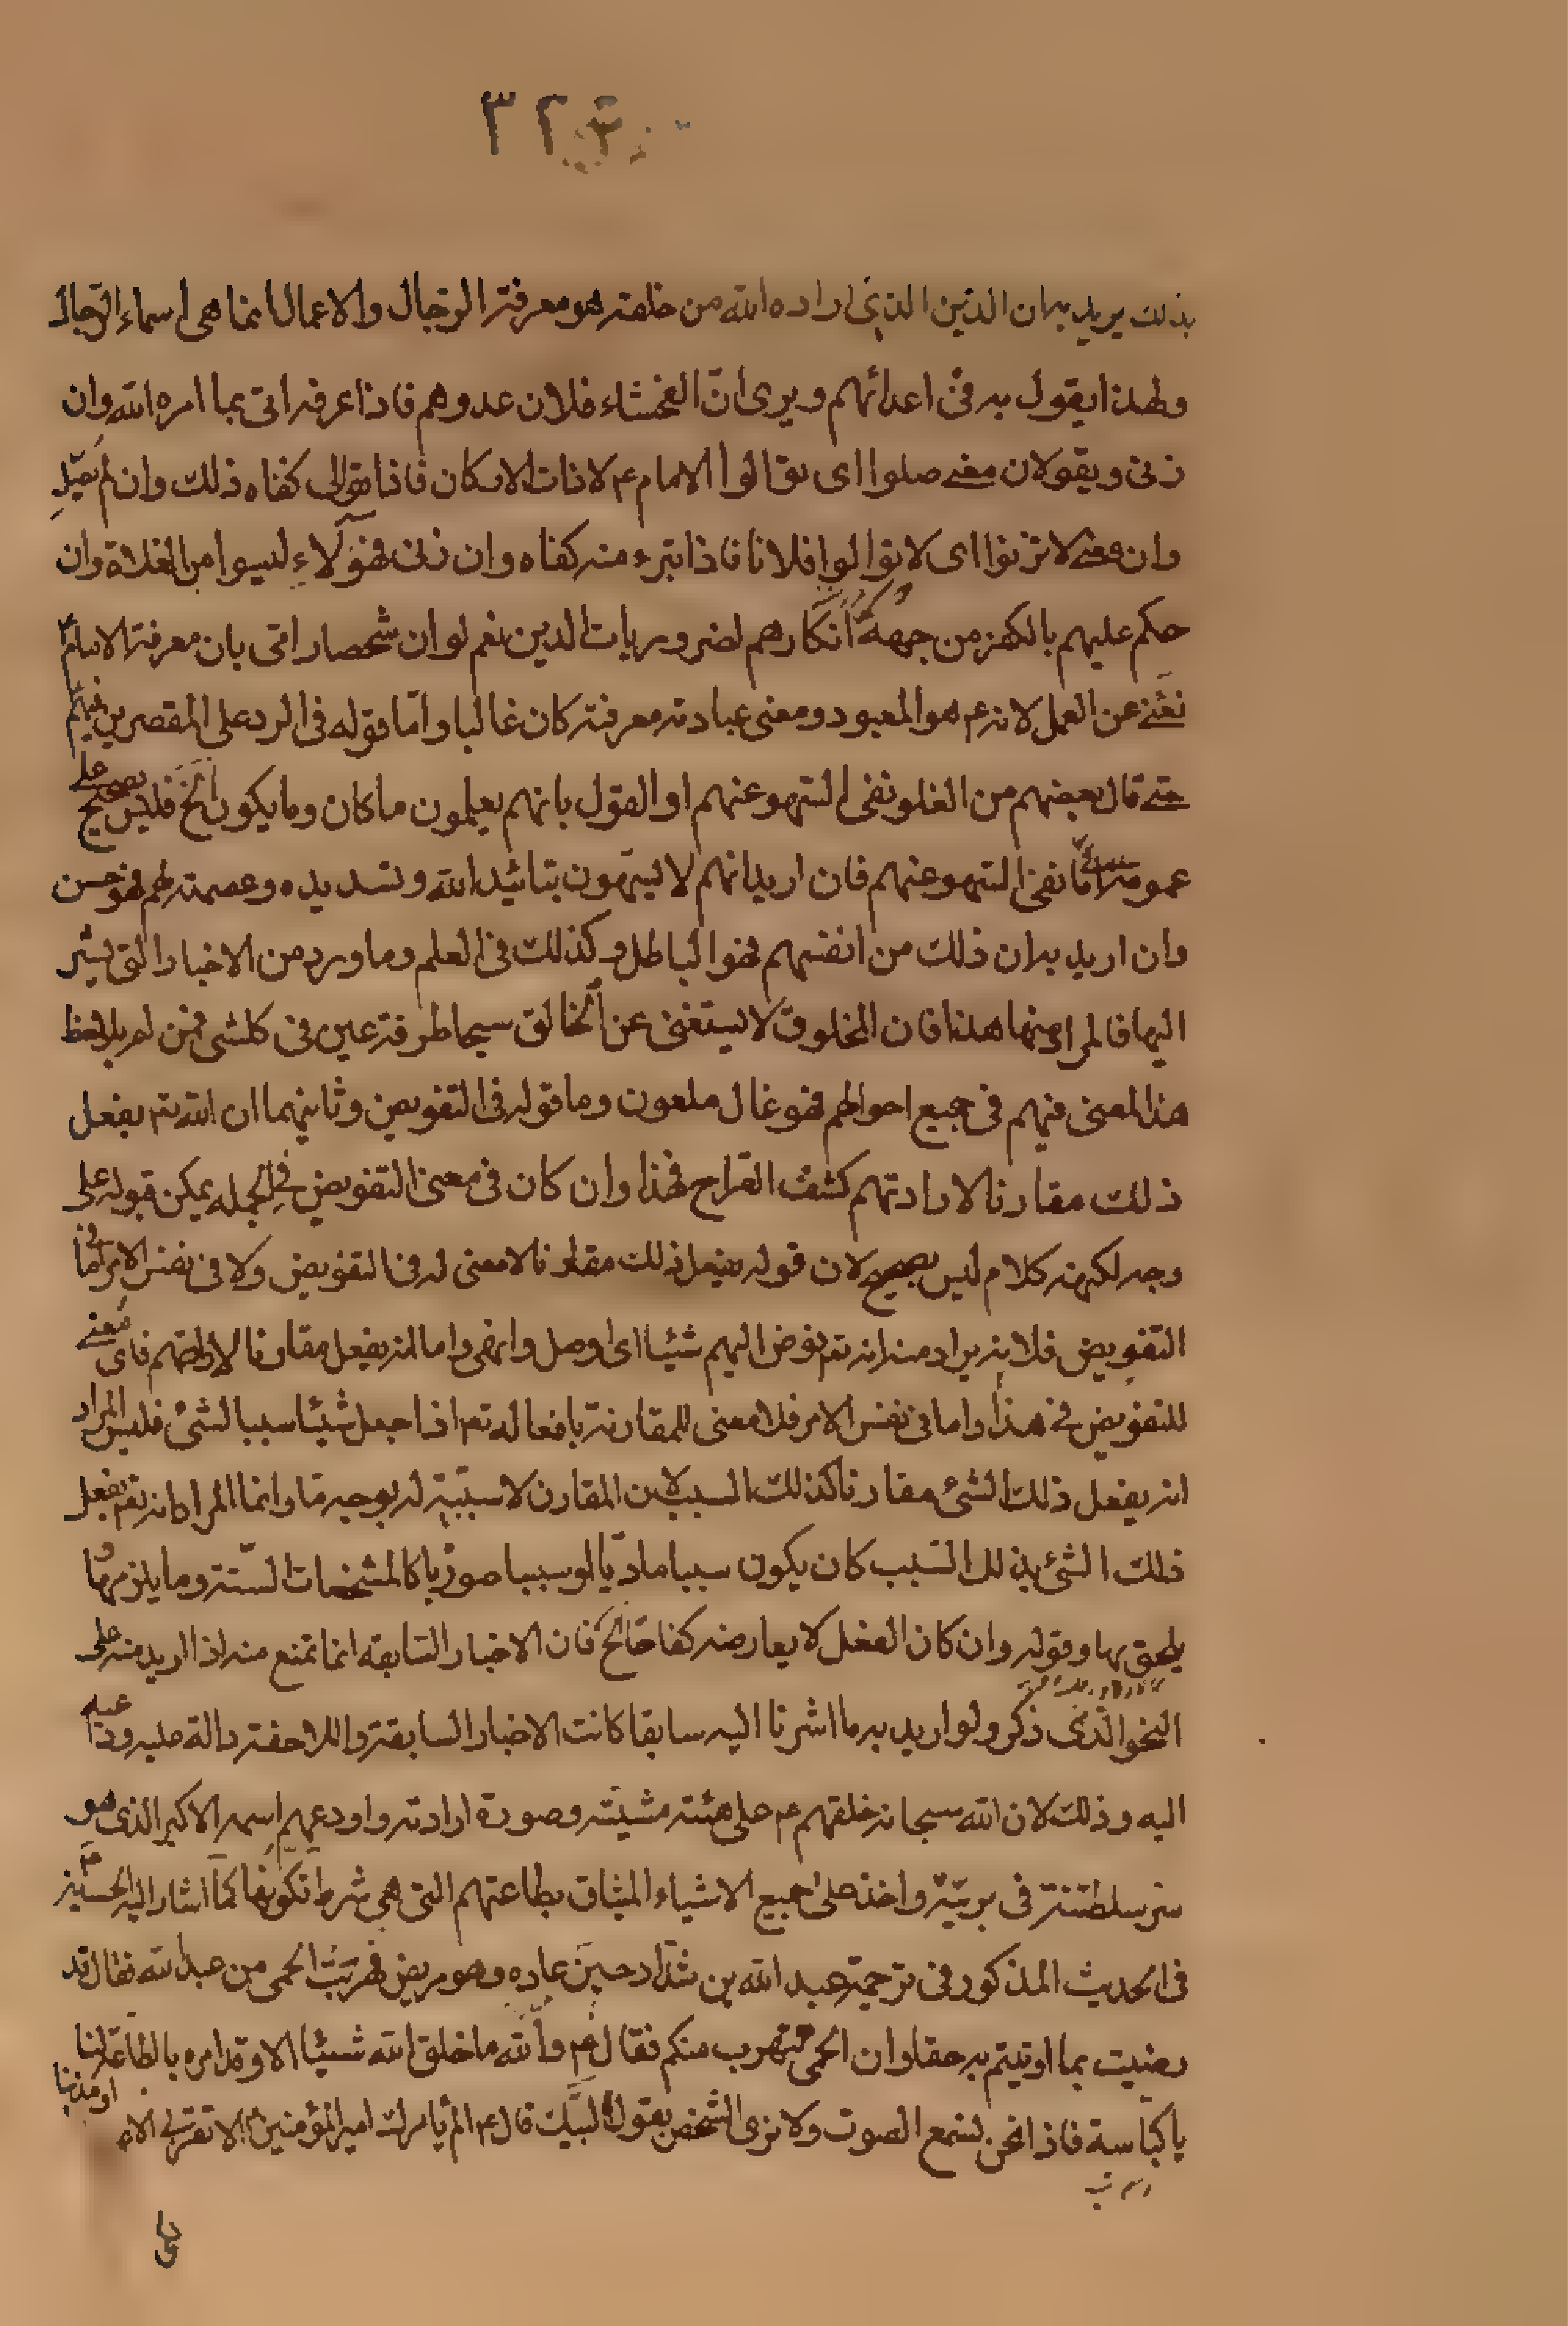 ٣٢٣
بذلك يريد بيان الدين الذى اراده الله من خلقه هو معرفة الرجال والاعمال انما هى اسماء الرجال
ولهذا يقول به فى اعدائهم ويرى انّ الفحشاء فلان عدوهم فاذا عرفه اتى بما امره الله وان
زنى ويقولان معنى صلوا اى توالوا الامام ع لا ذات الاركان فاذا توالى كفاه ذلك وان لم يصل
وان معنى لا تزنوا اى لا توالوا فلانا فاذا تبرء منه كفاه وان زنى فهؤلاء ليسوا من الغلاة وان
حكم عليهم بالكفر من جهة انكارهم لضروريات الدين نعم لو ان شخصا راى بان معرفة الامام ع
تغنى عن العمل لانه ع هو المعبود ومعنى عبادته معرفته كان غاليا وامّا قوله فى الرد على المقصرين فيهم
حتى قال بعضهم من الغلو نفى السهو عنهم او القول بانهم يعلمون ما كان وما يكون الخ فليس بصحيح على
عمومه امّا نفى السهو عنهم فان اريد انهم لا يسهون بتائيد الله وتسديده وعصمته لهم فهو حسن
وان اريد به ان ذلك من انفسهم فهو الباطل وكذلك فى العلم وما ورد من الاخبار التى تشير
اليها فالمراد منها هذا فان المخلوق لا يستغنى عن الخالق سبحا طرفة عين فى كلشى فمن لم يلاحظ
هذا المعنى فيهم فى جميع احوالهم فهو غال ملعون وما قوله فى التفويض وثانيهما ان الله تع يفعل
ذلك مقارنا لارادتهم كشق القمر الخ فهذا وان كان فى معنى التفويض فى الجملة يمكن قبوله على
وجه لكنه كلام ليس بصحيح لان قوله يفعل ذلك مقارنا لا معنى له فى التفويض ولا فى نفس الامر امّا فى
التفويض فلانه يراد منه انه تع يفوض اليهم شيئا اى اوصل وانهى واما انه يفعل مقارنا لارادتهم فاى معنى
للتفويض فى هذا واما فى نفس الامر فلا معنى للمقارنة بافعاله تع اذا جعل شيئا سببا لشئ فليس المراد
انه يفعل ذلك الشئ مقارنا لذلك السبب لان المقارن لا سببية له بوجه ما وانما المراد انه تع يفعل
ذلك الشئ بذلك السبب كان يكون سببا ماديّا او سببا صوريّا كالمشخصات الستة وما يلزمها و
يلحق بها وقوله وان كان العقل لا يعارضه كفاحا الخ فان الاخبار السابقة انما تمنع منه اذا اريد منه على
النحو الذى ذكر ولو اريد به ما اشرنا اليه سابقا كانت الاخبار السابقة واللاحقة دالة عليه وداعية
اليه وذلك لان الله سبحانه خلقهم ع على هيئة مشيّته وصورة ارادته واودعهم اسمه الاكبر الذى هو
سر سلطنته فى بريّته واخذ على جميع الاشياء الميثاق بطاعتهم التى هى شرط تكوينها كما اشار اليه الحسين ع
فى الحديث المذكور فى ترجمة عبد الله بن شدّاد حين عاده وهو مريض فهربت الحمى من عبد الله فقال قد
رضيت بما اوتيتم به حقا وان الحمى لتهرب منكم فقال ع والله ما خلق الله شيئا الا وقد امره بالطاعة لنا
يا كباسة فاذا نحن نسمع الصوت ولا نرى الشخص يقول لبيك قال ع الم يأمرك امير المؤمنين ع الا تقربى الا عدوا او مذنبا